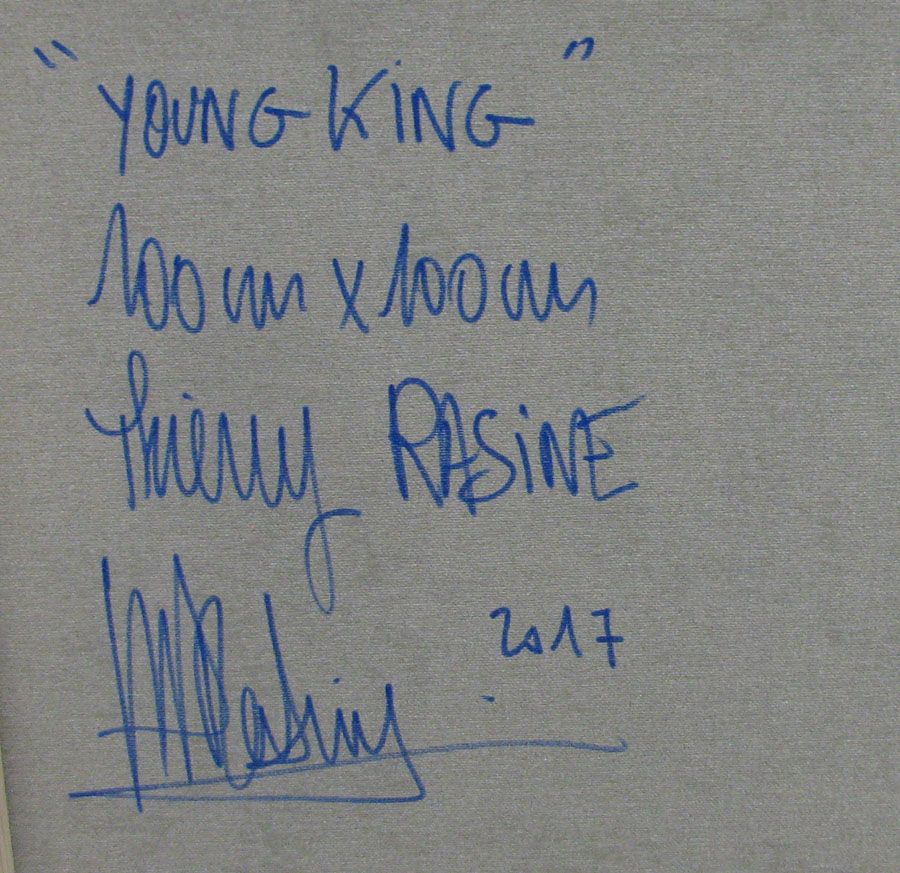 "YOUNG KiNG"
100 cm x 100 cm
Thierry RASiNE
2017